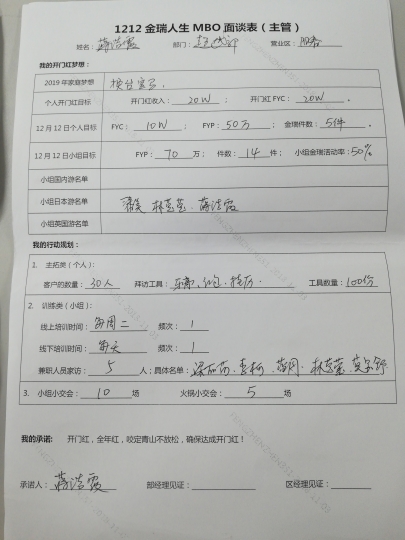 1212 金瑞人生 MBO 面谈表（主管）
姓名： 蒋洁霞 部门： 营业区：
我的开门红梦想：
2019 年家庭梦想 换台宝马。
个人开门红目标 开门红收入： 20W ； 开门红 FYC： 20W 。
12 月 12 日个人目标 FYC： 10W ； FYP： 50万 ； 金瑞件数： 5件 。
12 月 12 日小组目标 FYP： 70 万； 件数： 14 件； 小组金瑞活动率： 50%
小组国内游名单
小组日本游名单 林慧莹、蒋洁霞
小组英国游名单
我的行动规划：
1. 主拓类（个人）：
客户的数量： 30人 拜访工具： 台历 工具数量： 100份
2. 训练类（小组）：
线上培训时间： 每周二 频次： 1
线下培训时间： 每天 频次： 1
兼职人员家访： 5 人；具体名单： 林慧莹、
3. 小组小交会： 10 场 火锅小交会： 5 场
我的承诺： 开门红，全年红，咬定青山不放松，确保达成开门红！
承诺人： 蒋洁霞 部经理见证： 区经理见证：